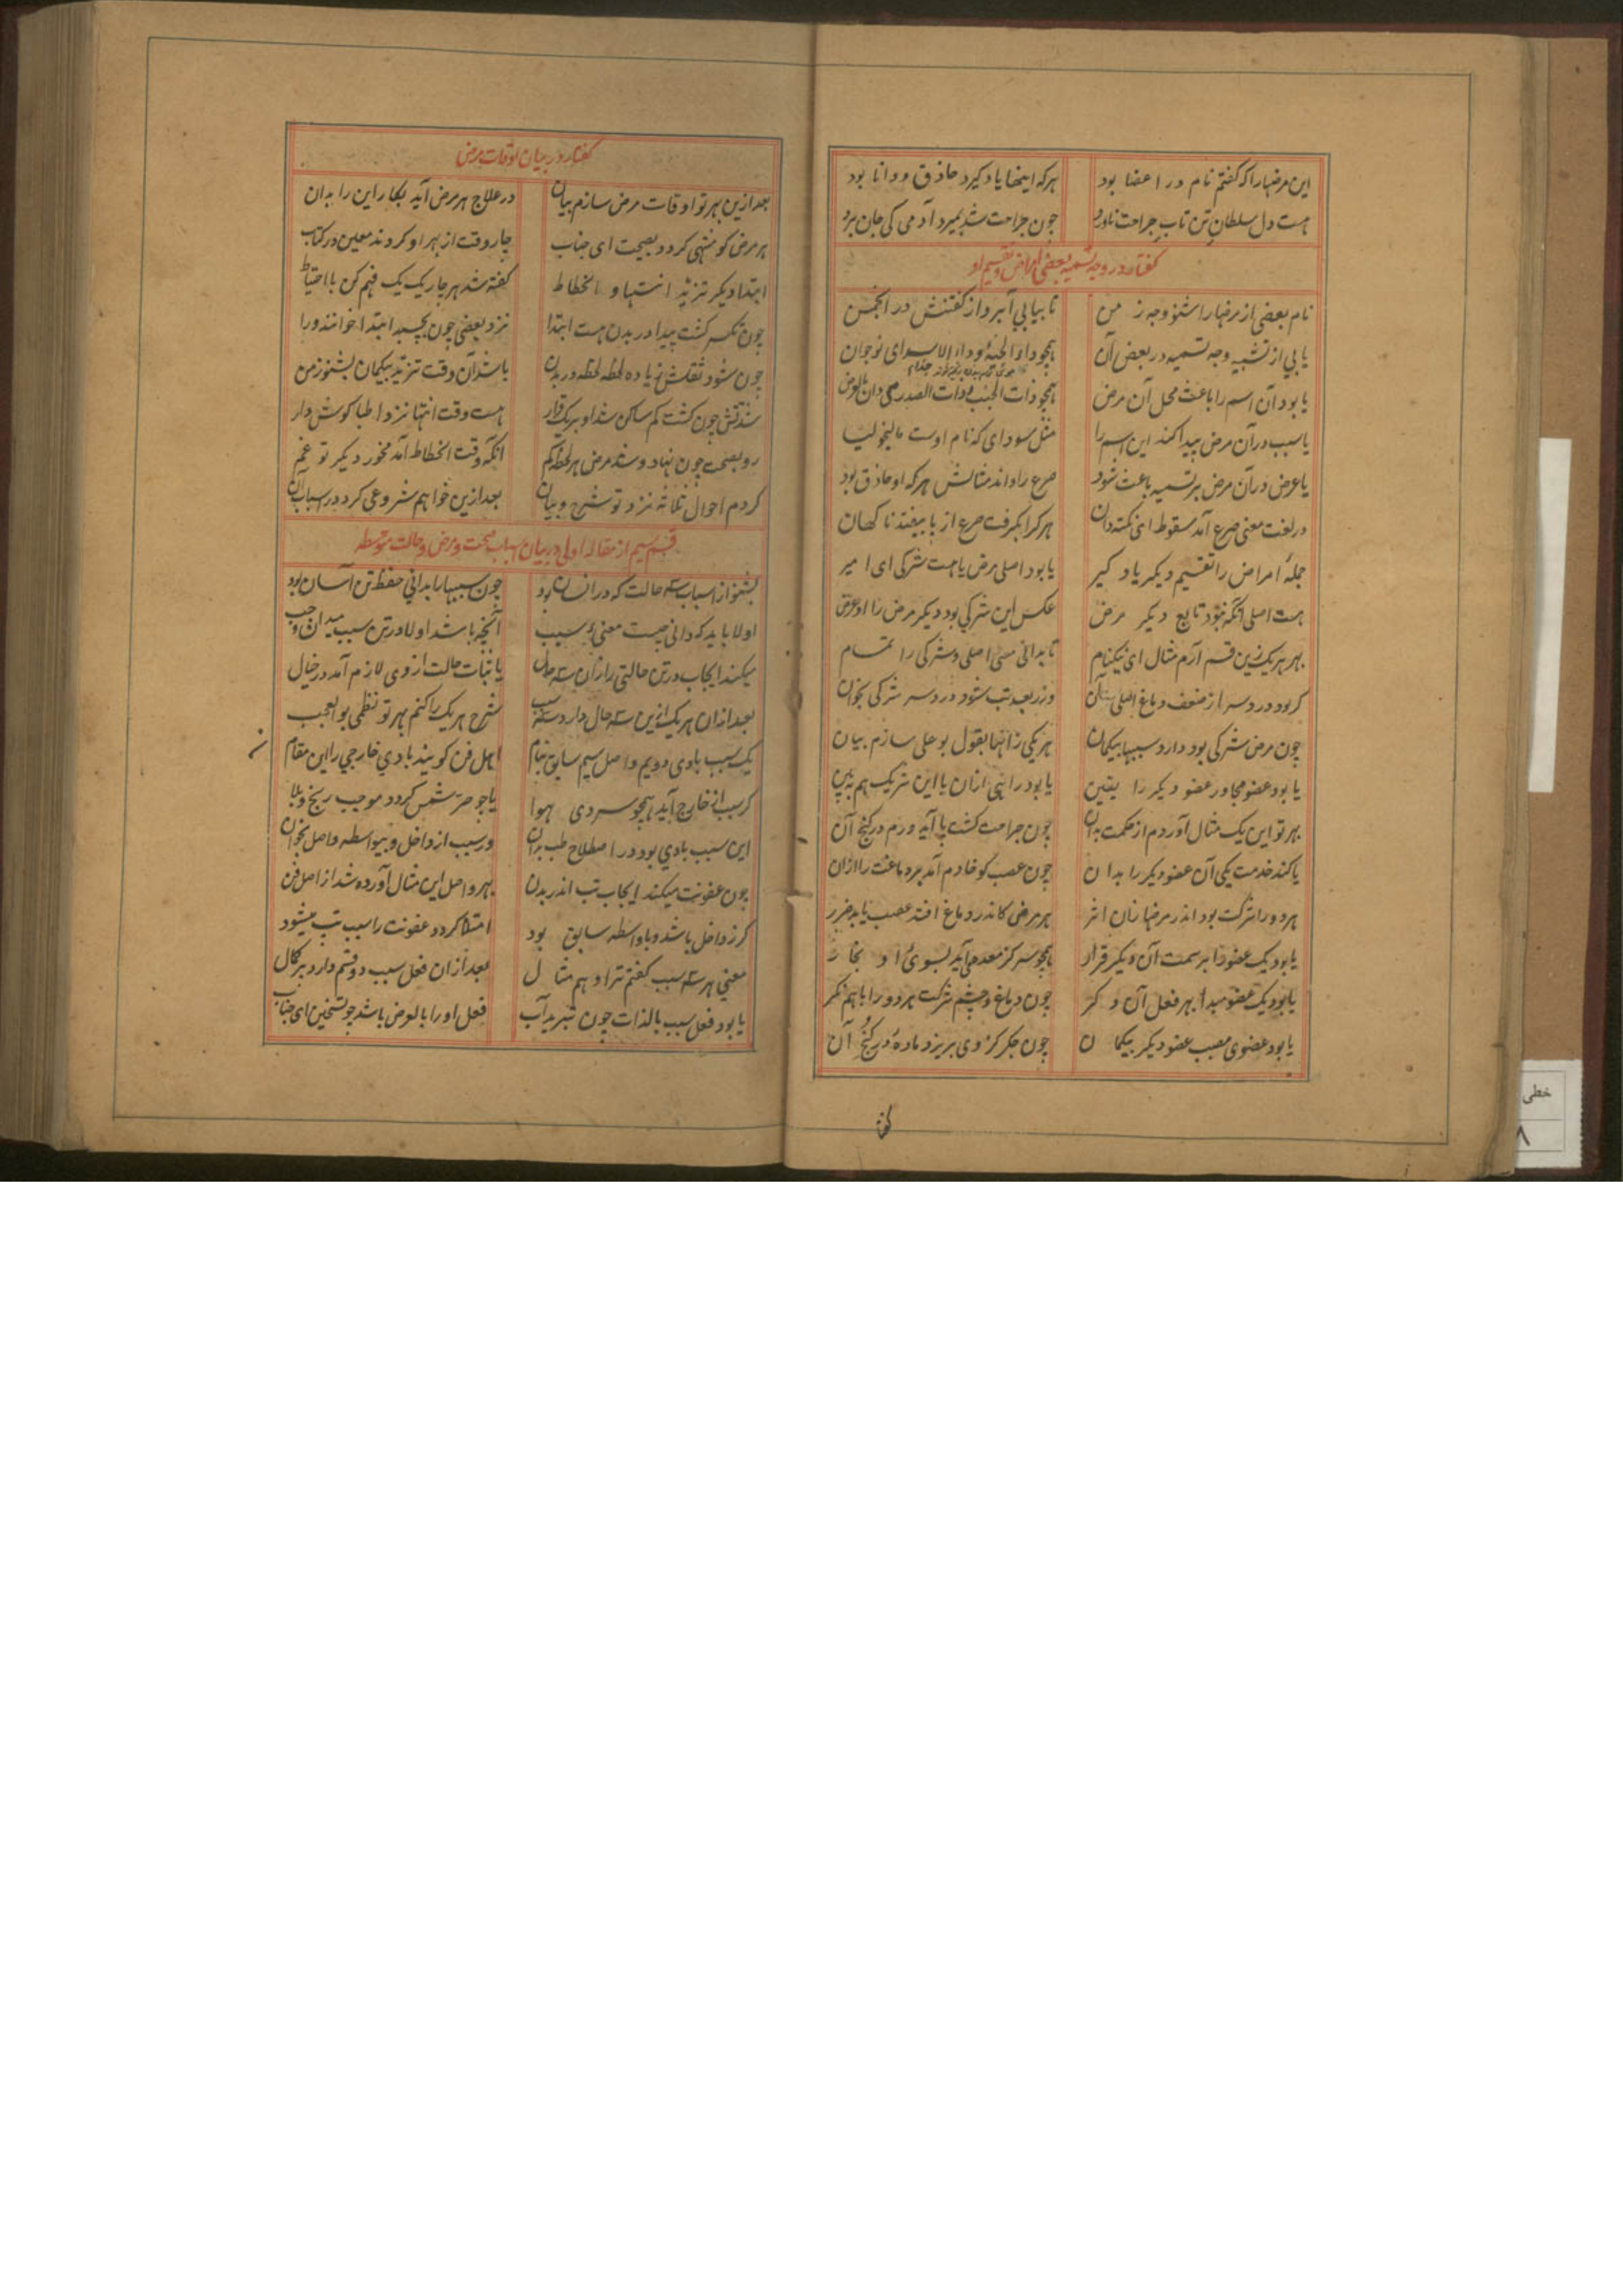 این مرضها را که گفتم نام در اعضا بود هر که اینها یاد گیرد حاذق و دانا بود
هست دل سلطان تن تاب جراحت ناورد چون جراحت شد بمیرد آدمی کی جان برد
گفتار در وجه تسمیه بعضی امراض و تقسیم او
نام بعضی از مرضها را شنو وجه ز من تا بیابی آبرو از گفتنش در انجمن
یابی از تشبیه وجه تسمیه در بعض آن همچو داء الحیة و داء الاسد ای نوجوان
یا بود آن اسم را باعث محل آن مرض همچو ذات الجنب و ذات الصدر می دان
یا سبب در آن مرض پیدا کند این اسم را مثل سودای که نام اوست مالیخولیا
یا عرض در آن مرض بر تسمیه باعث شود صرع را داند مثالش هر که او حاذق بود
در لغت معنی صرع آمد سقوط ای نکته دان هر کرا بگرفت صرع از پا بیفتد ناگهان
جملهٔ امراض را تقسیم دیگر یاد گیر یا بود اصلی مرض یا هست شرکی ای امیر
هست اصلی آنکه نبود تابع دیگر مرض عکس این شرکی بود دیگر مرض را او عرض
بهر هر یک زین قسم آرم مثال ای نیکنام تا بدانی معنی اصلی و شرکی را تمام
گر بود درد سر از ضعف دماغ اصلی ست آن ور ز بعد تب شود درد سر شرکی بخوان
چون مرض شرکی بود دارد سببها بیگمان هر یکی ز آنها بقول بوعلی سازم بیان
یا بود عضو مجاور عضو دیگر را یقین
بهر تو این یک مثال آوردم از حکمت بدان چون جراحت گشت پا آید ورم در کنج آن
یا کند خدمت یکی آن عضو دیگر را بدان چون عصب کو خادم آمد مر دماغت را ازان
هر دو را شرکت بود اندر مرضها زان اثر هر مرض کاندر دماغ افتد عصب یابد ضرر
یا بود یک عضو را بر سمت آن دیگر قرار همچو سر کز معده می آید بسوی او بخار
یا بود یک عضو مبدأ بهر فعل آن دگر چون دماغ و چشم شرکت هر دو را باهم نگر
یا بود عضوی مصب عضو دیگر بیگمان چون جگر کز وی بریزد ماده در کنج آن
گفتار در بیان اوقات مرض
بعد ازین بهر تو اوقات مرض سازم بیان در علاج هر مرض آید بکار این را بدان
هر مرض کو منتهی گردد بصحت ای جناب چار وقت از بهر او کردند معین در کتاب
ابتدا دیگر تزید انتها و انحطاط گفته شد هر چار یک یک فهم کن با احتیاط
چون تکسر گشت پیدا در بدن هست ابتدا نزد بعضی چون بچسبد ابتدا خوانند ورا
چون شود ثقلش زیاده لحظه لحظه در بدن باشد آن وقت تزید بیگمان بشنو ز من
شدتش چون گشت کم ساکن شد او بر یک قرار هست وقت انتها نزد اطبا گوش دار
رو بصحت چون نهاد و شد مرض هر لحظه کم آنگه وقت انحطاط آمد مخور دیگر تو غم
کردم احوال ثلاثه نزد تو شرح و بیان بعد ازین خواهم شروعی کرد در اسباب آن
قسم سیم از مقاله اولی در بیان اسباب صحت و مرض و حالت متوسطه
بشنو از اسباب سه حالت که در انسان بود چون سببها را بدانی حفظ تن آسان بود
اولا باید که دانی چیست معنیٔ سبب آنچه باشد اولا در تن سبب میدان وجب
میکند ایجاب در تن حالتی را زان سه حال یا ثبات حالت از وی لازم آمد در خیال
بعد ازان هر یک ازین سه حال دارد سه سبب شرح هر یک را کنم بهر تو نظمی بوالعجب
یک سبب بادی دویم واصل سیم سابق بنام اهل فن گویند بادی خارجی را این مقام
گر سبب از خارج آید همچو سردی هوا یا چو حر شمس گردد موجب رنج و بلا
این سبب بادی بود در اصطلاح طب بدان ور سبب از داخل و بیواسطه واصل بخوان
چون عفونت میکند ایجاب تب اندر بدن بهر واصل این مثال آورده شد از اهل فن
گر ز داخل باشد و با واسطه سابق بود امتلا کرده عفونت را سبب تب میشود
معنی هر سه سبب گفتم ترا و هم مثال بعد ازان فعل سبب دو قسم دارد بر کمال
یا بود فعل سبب بالذات چون تبرید آب فعل او را بالعرض باشد چو تسخین ای جناب
خطی
۸